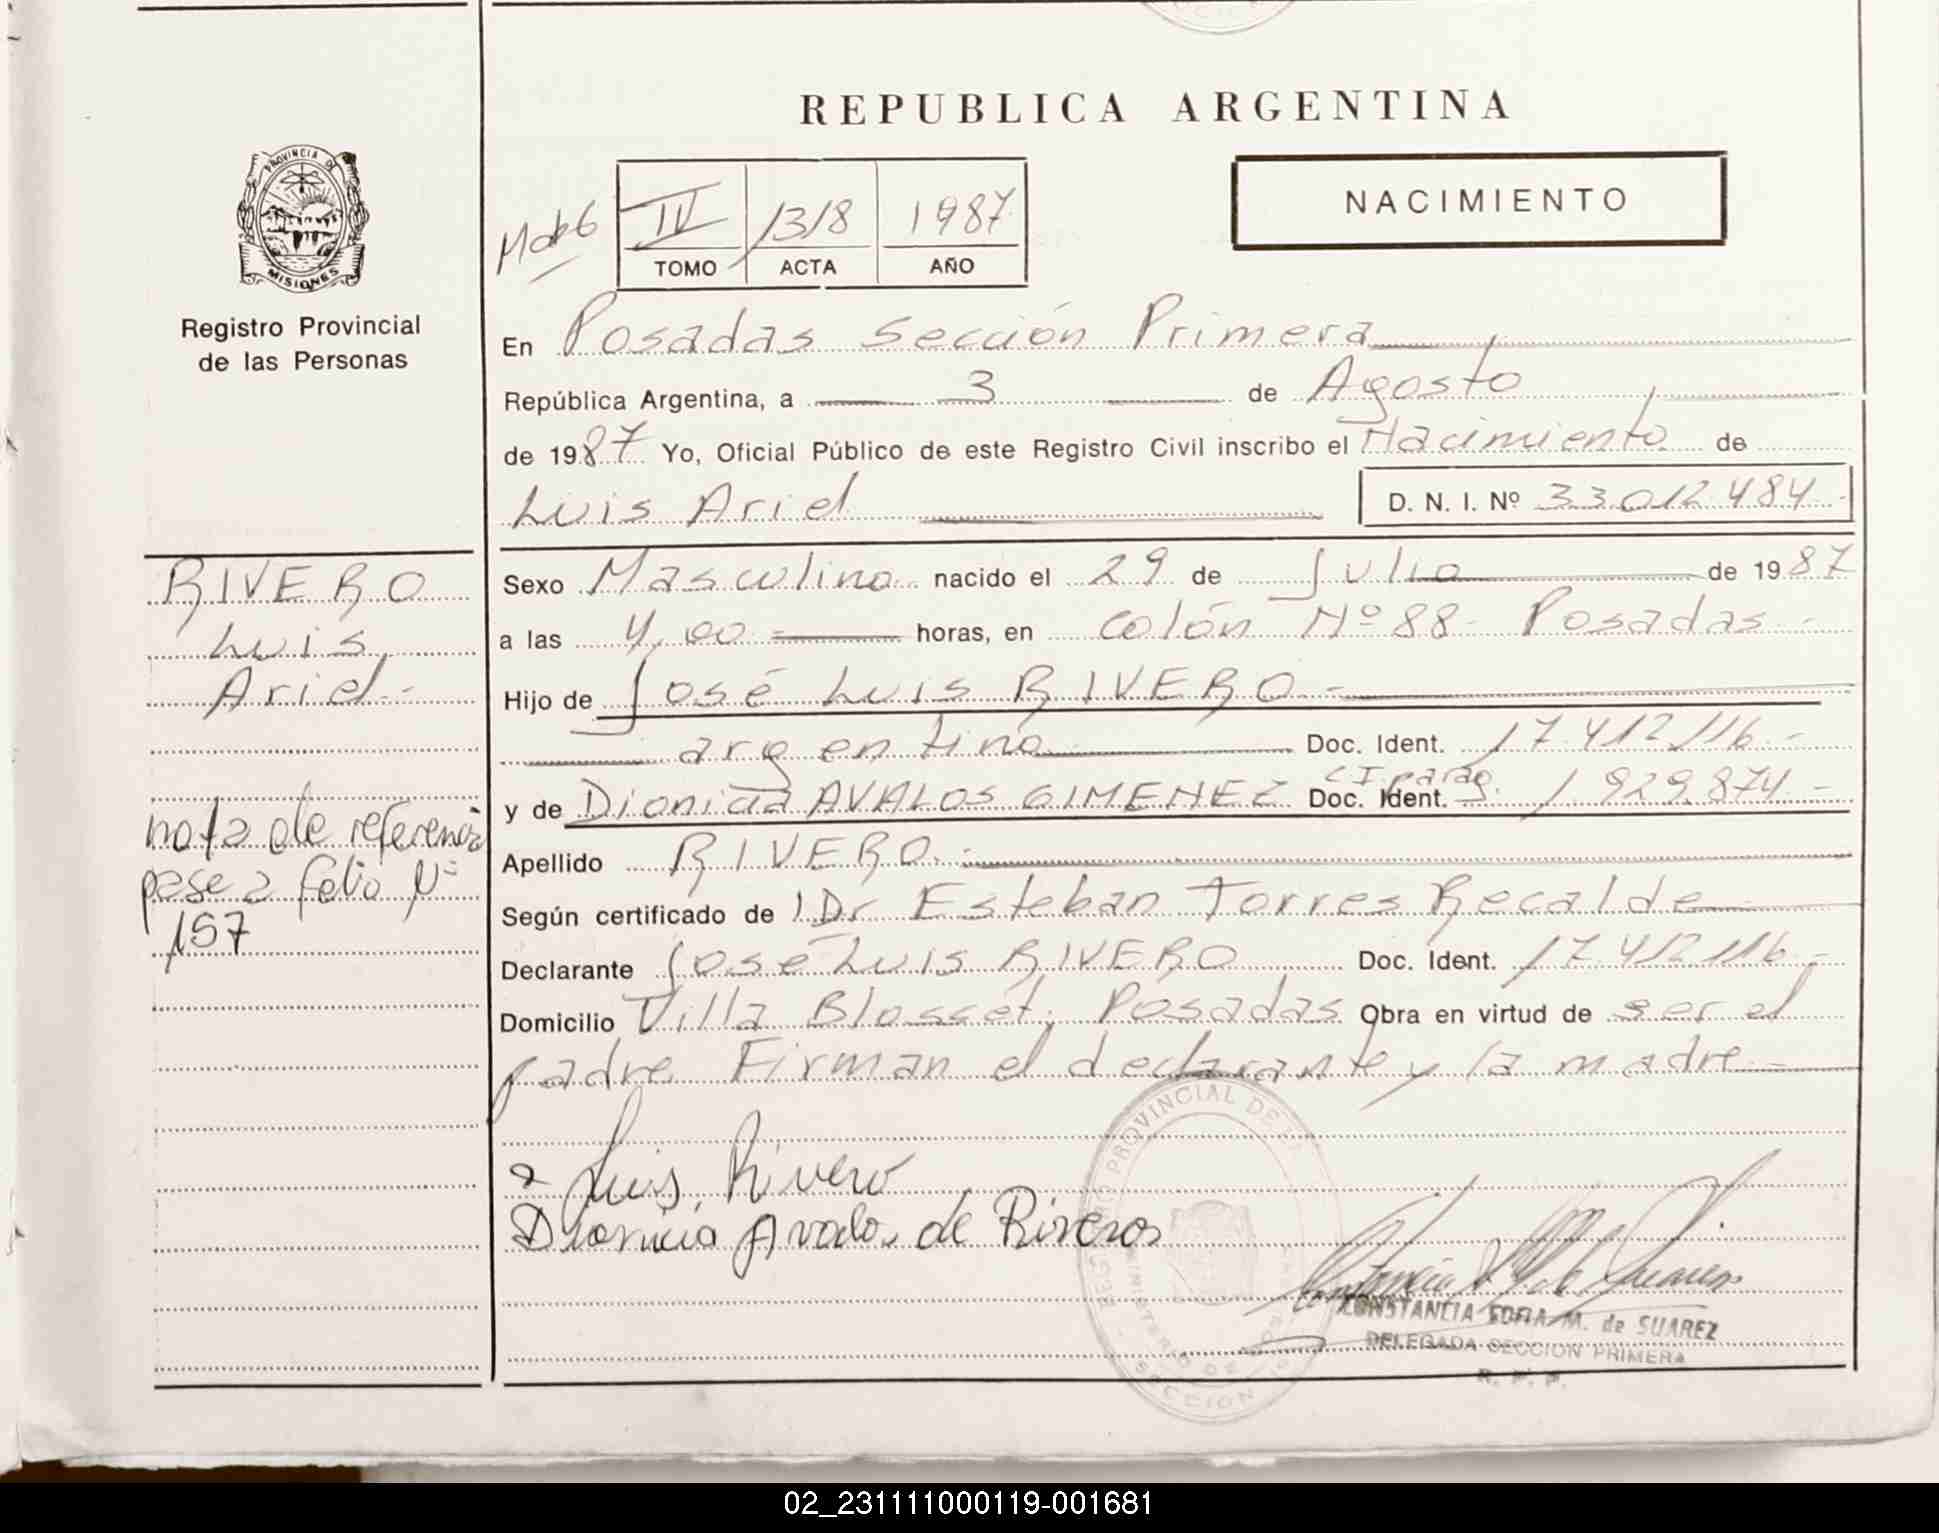 REPUBLICA ARGENTINA
NACIMIENTO
PROVINCIA DE
MISIONES
Registro Provincial
de las Personas
IV 1318 1987
TOMO ACTA AÑO
En Posadas Sección Primera
República Argentina, a 3 de Agosto
de 1987 Yo, Oficial Público de este Registro Civil inscribo el Nacimiento de
Luis Ariel D. N. I. Nº 33.012.484.-
Sexo Masculino nacido el 29 de Julio de 1987
a las 4,00 horas, en Colón Nº 88- Posadas.-
Hijo de José Luis RIVERO.-
argentino Doc. Ident. 17.412.116.-
C I parag.
y de Dionicia AVALOS GIMENEZ Doc. Ident. 1.929.874.-
Apellido RIVERO.-
Según certificado de Dr Esteban Torres Recalde
Declarante José Luis RIVERO Doc. Ident. 17.412.116.-
Domicilio Villa Blosset, Posadas Obra en virtud de ser el
padre. Firman el declarante y la madre.-
RIVERO
Luis
Ariel.-
nota de referencia
pase a folio Nº
157
Luis Rivero
Dionicia Avalos de Riveros
CONSTANCIA SOFIA M. de SUAREZ
DELEGADA SECCION PRIMERA
R. P. P.
02_231111000119-001681